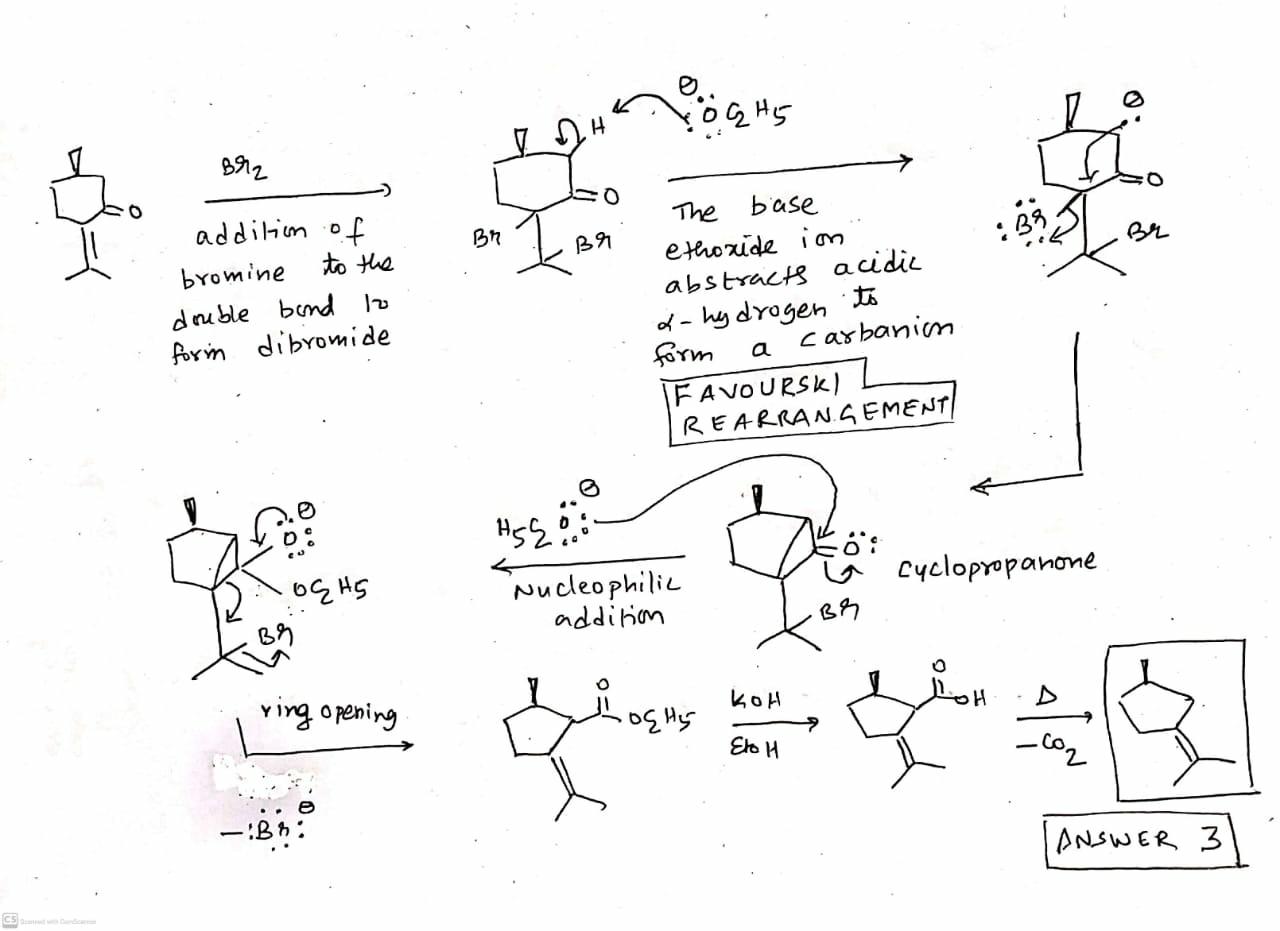 Br2
addition of
bromine to the
double bond to
form dibromide
O
H
⊖
:ÖC2H5
O
Br
Br
The base
ethoxide ion
abstracts acidic
α-hydrogen to
form a carbanion
FAVOURSKI
REARRANGEMENT
⊖
O
:Br
Br
⊖
O:
OC2H5
Br
ring opening
⊖
-:Br:
⊖
H5C2O:
Nucleophilic
addition
=O:
Br
cyclopropanone
O
OC2H5
KOH
EtOH
O
OH
Δ
-CO2
ANSWER 3
CS Scanned with CamScanner